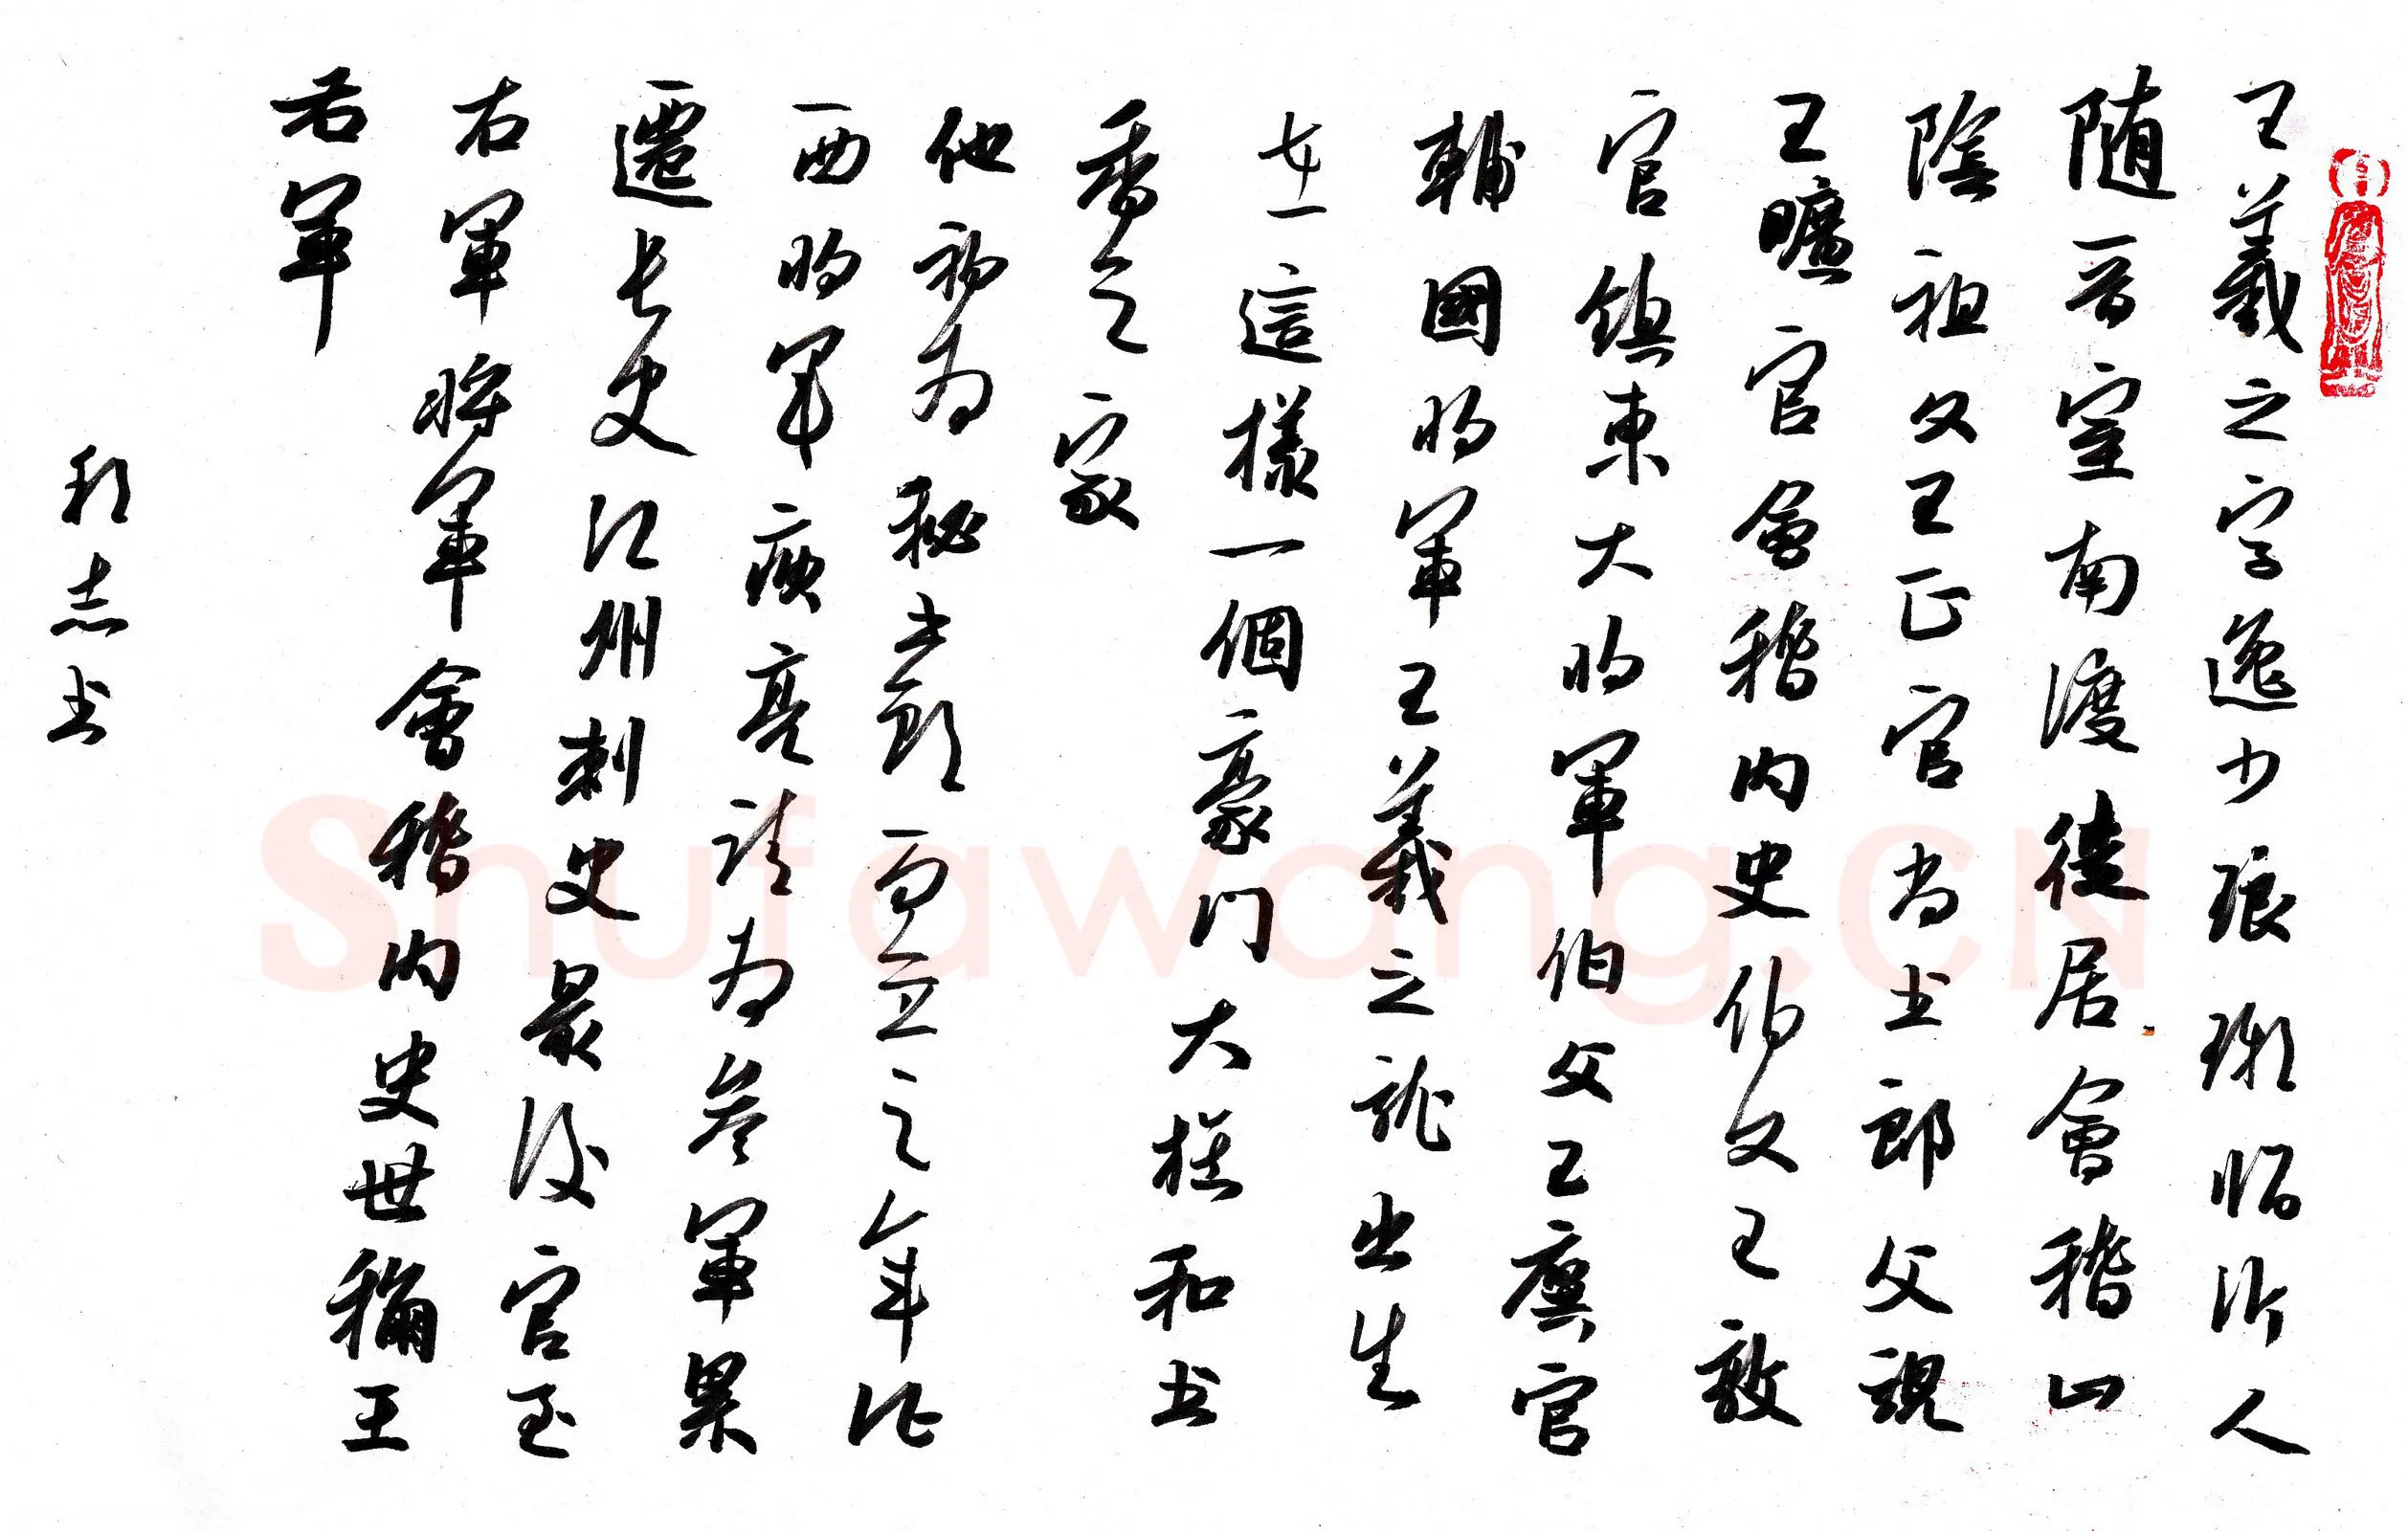 王羲之字逸少琅琊临沂人
随晋室南渡徒居會稽山
陰祖父王正官尚书郎父親
王曠官會稽内史伯父王敦
官镇東大将軍伯父王廙官
輔國将軍王羲之就出生
在這樣一個豪门大族和书
香之家
他初为秘书郎而立之年任
西将军庾亮請为參軍累
遷长史江州刺史最後官至
右軍将軍會稽内史世稱王
右軍
志书
Shufawang.CN